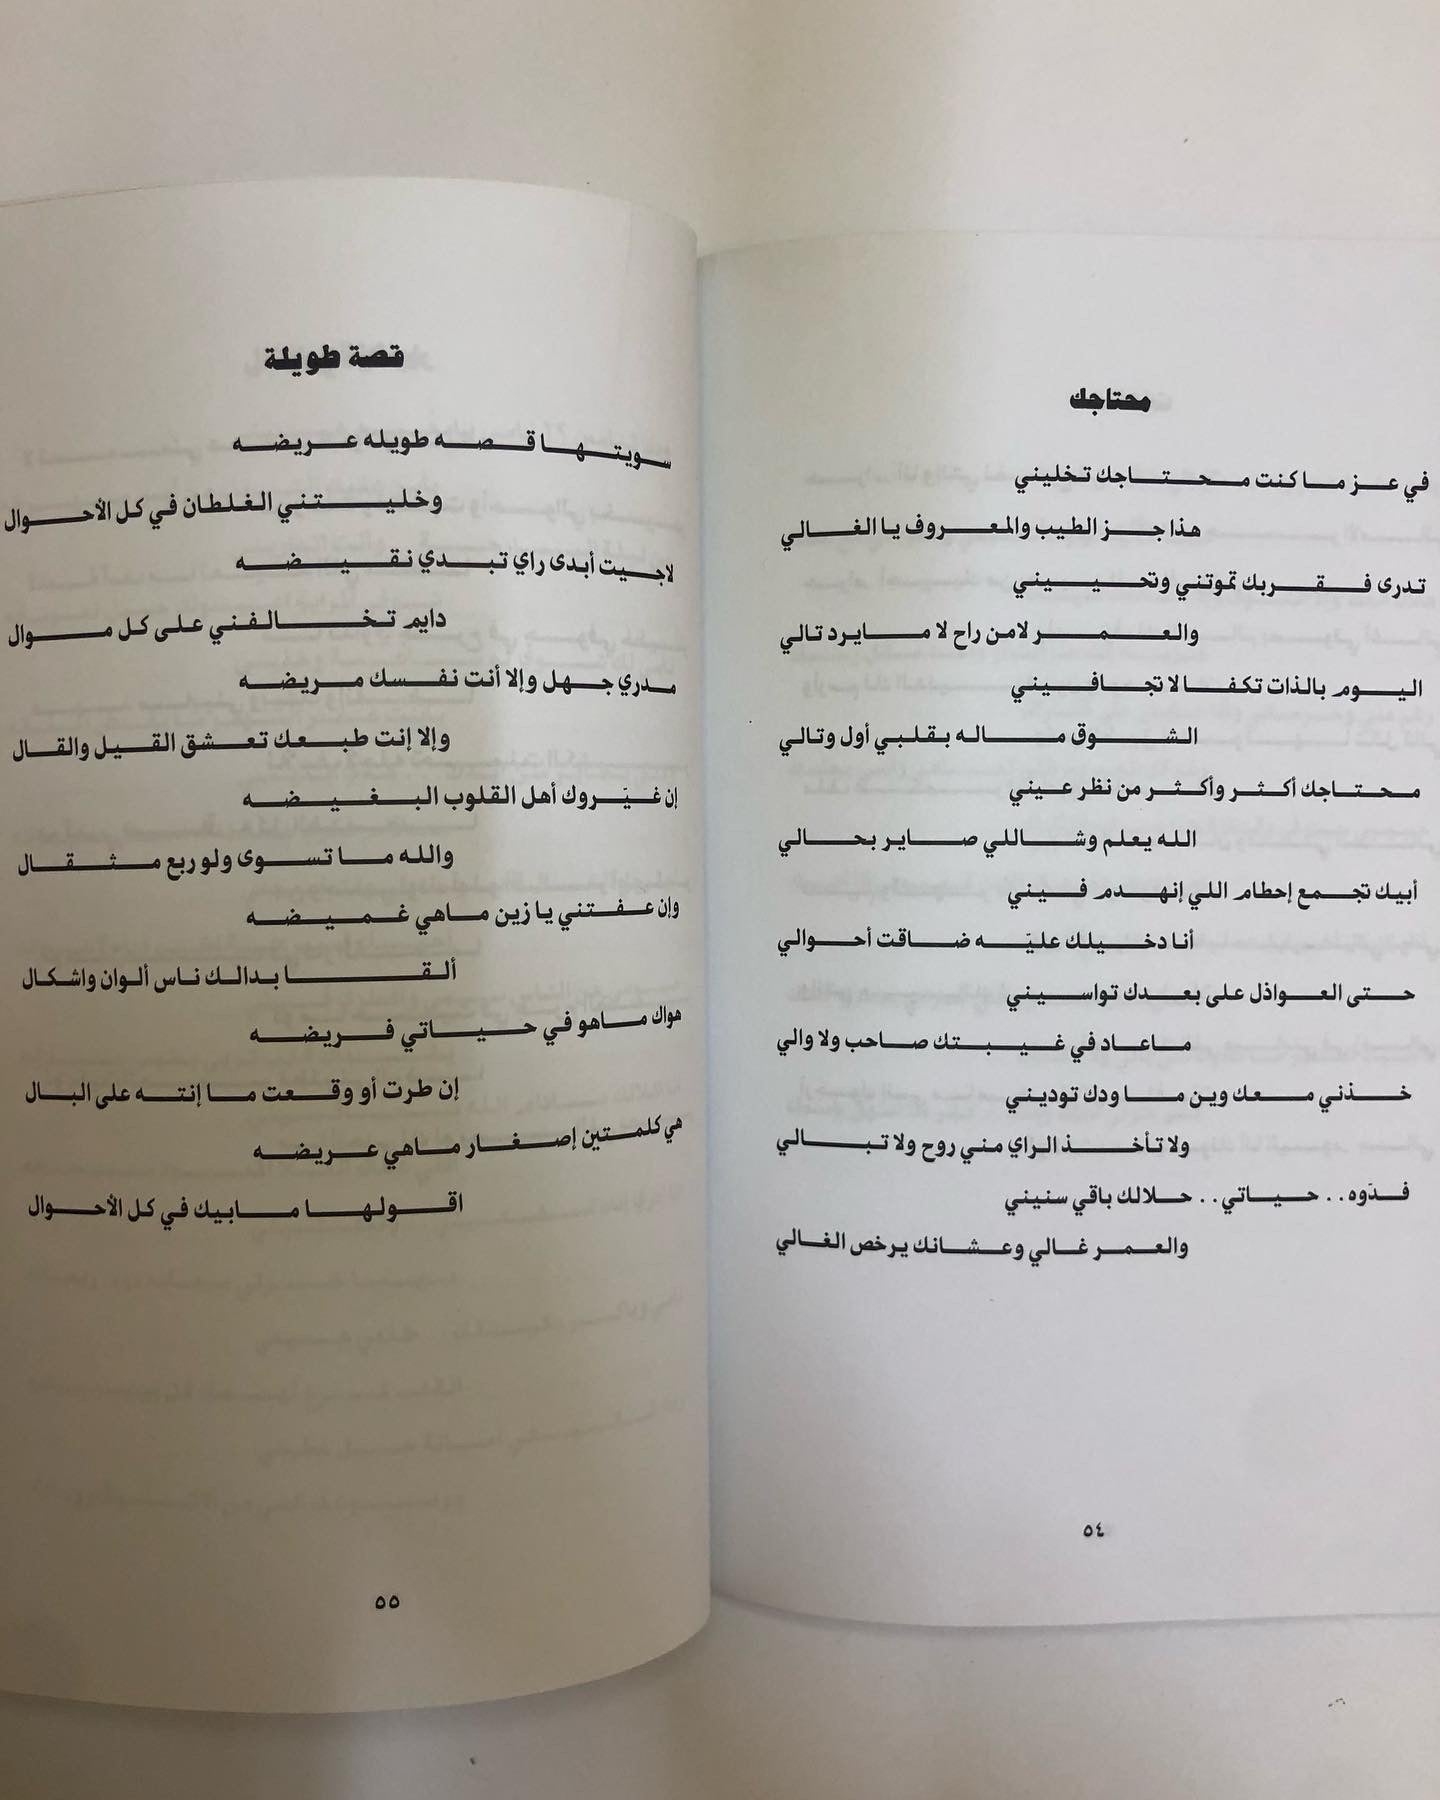 محتاجك
في عز ما كنت محتاجك تخليني
هذا جز الطيب والمعروف يا الغالي
تدرى فقربك تموتني وتحييني
والعمر لامن راح لا مايرد تالي
اليوم بالذات تكفا لا تجافيني
الشوق ماله بقلبي أول وتالي
محتاجك أكثر وأكثر من نظر عيني
الله يعلم وشاللي صاير بحالي
أبيك تجمع إحطام اللي إنهدم فيني
أنا دخيلك عليّه ضاقت أحوالي
حتى العواذل على بعدك تواسيني
ماعاد في غيبتك صاحب ولا والي
خذني معك وين ما ودك توديني
ولا تأخذ الراي مني روح ولا تبالي
فدّوه.. حياتي.. حلالك باقي سنيني
والعمر غالي وعشانك يرخص الغالي
٥٤
قصة طويلة
سويتها قصه طويله عريضه
وخليتني الغلطان في كل الأحوال
لاجيت أبدى راي تبدي نقيضه
دايم تخالفني على كل موال
مدري جهل وإلا أنت نفسك مريضه
وإلا إنت طبعك تعشق القيل والقال
إن غيّروك أهل القلوب البغيضه
والله ما تسوى ولو ربع مثقال
وإن عفتني يا زين ماهي غميضه
ألقا بدالك ناس ألوان واشكال
هواك ماهو في حياتي فريضه
إن طرت أو وقعت ما إنته على البال
هي كلمتين إصغار ماهي عريضه
اقولها مابيك في كل الأحوال
٥٥